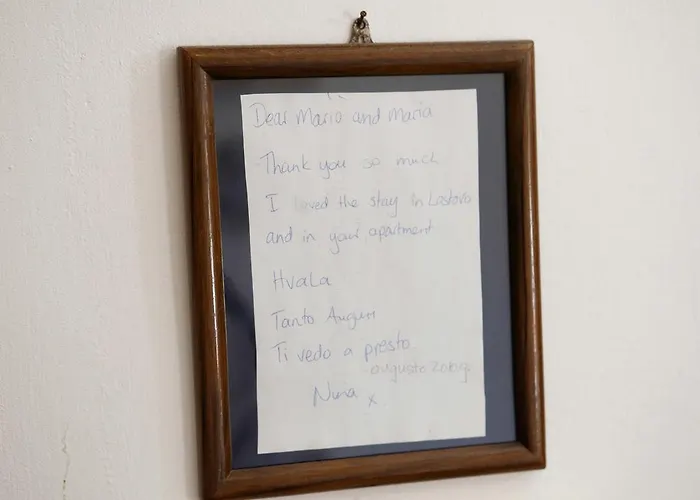 Dear Mario and Maria
Thank you so much
I loved the stay in Lastovo
and in your apartment
Hvala
Tanto Auguri
Ti vedo a presto
augusto
Nina x